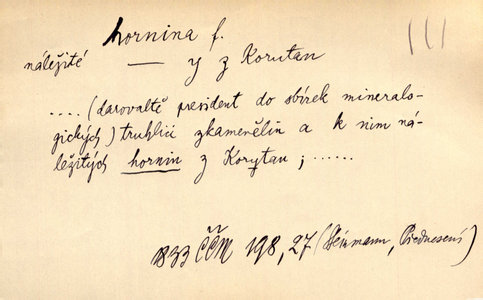 hornina f.
náležité — y z Korutan
.... (darovaltě president do sbírek mineralo-
gických) truhlici zkamenělin a k nim ná-
ležitých hornin z Korytan; ......
1833 ČČM 198, 27 (       , Přednesení)